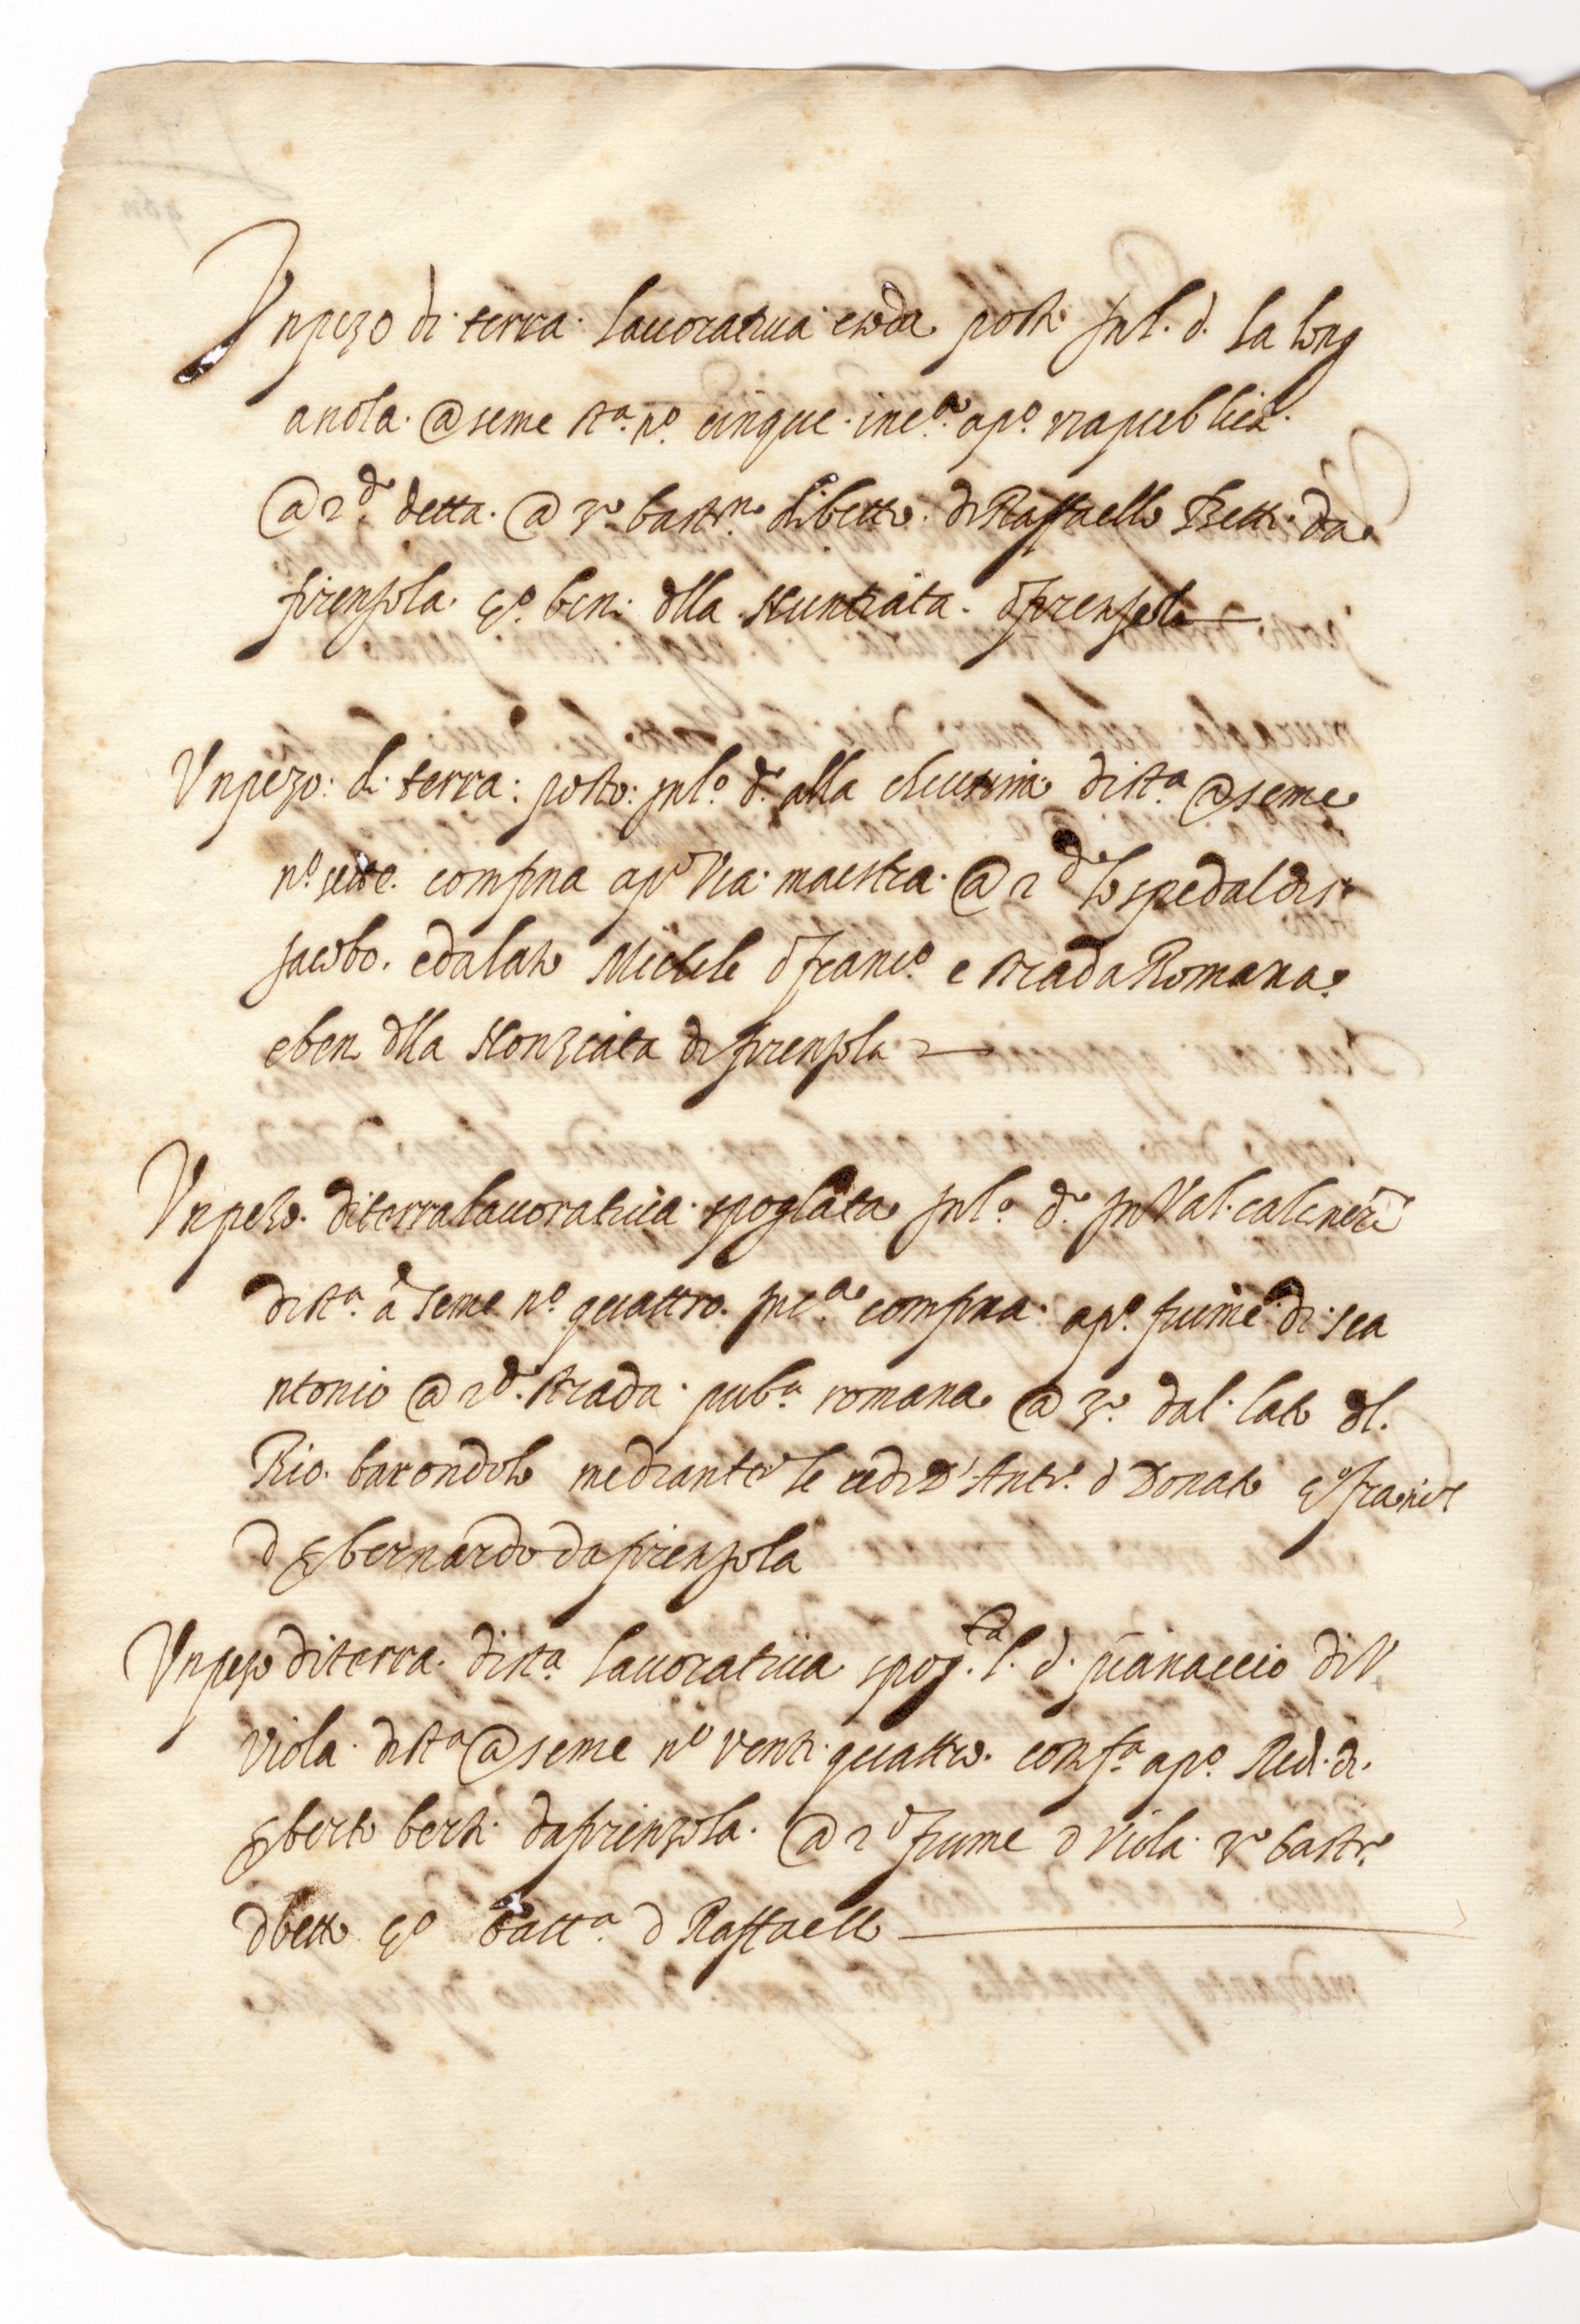 Un pezo di terra lauoratiua e soda posto in l. d. la long
anola. @ seme sta. no. cinque. inca. apo. via publica.
@ 2do detta. @ 3o bastno. di betto. di Raffaello Betti da
firenzola. 4o beni dlla Nuntiata. d firenzola
Un pezo: di terra: posto: in lo. do alla di sta @ seme
no. sette. confina apo Via maestra. @ 2do lo spedal di s.
Jacobo. e da lato Michele d franco. e strada Romana
e beni dlla Nonziata di firenzola
Un pezo. di terra lauoratiua. spogliata in lo. do in Val.
di sta. a seme no. quattro. inca confina. apo. fiume di sca
ntonio @ 2do. strada. puba. romana @ 3o. dal. lato dl.
Rio. barondolo mediante le redi d'Anto. d Donato 4o franco
d bernardo da firenzola
Un pezo di terra. di sta lauoratiua spogta. l. d. pianaccio di V
Viola. di sta @ seme no venti quattro. confa. apo. Redi. di.
berto berti da firenzola. @ 2do fiume d Viola. 3o bastno
d betto 4o batta. d Raffaello